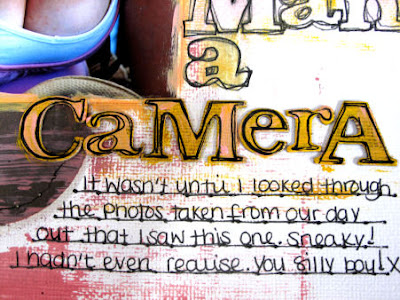 Man
a
CaMerA
It wasn't until I looked through
the photos taken from our day
out that I saw this one. sneaky!
I hadn't even realise. you silly boy!X